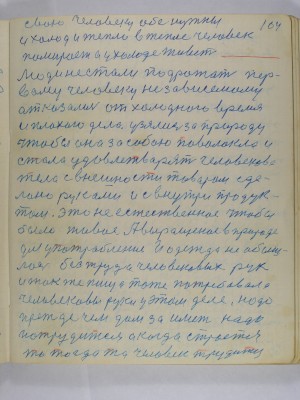 свою человеку обе нужны 104
и холод и тепло в тепле человек
помирает а у холоде живет.
Люди не стали подражат пер-
вому человеку независемому
отказалис от холодного время
и плохого дела. узялис за природу
чтобы она за собою поволокла и
стала удовлетварят человеков
тело с внешности товаром зде-
лано руками и с внутри продук-
том. Это не естественное чтобы
было живое. А
для употрабление и одежда не
лас без труда человековых рук
и також пища тоже потребовала
человековы руки у этом деле, надо
прежде чем дом за имет надо
потрудится а когда строется
то тогда та человек трудится